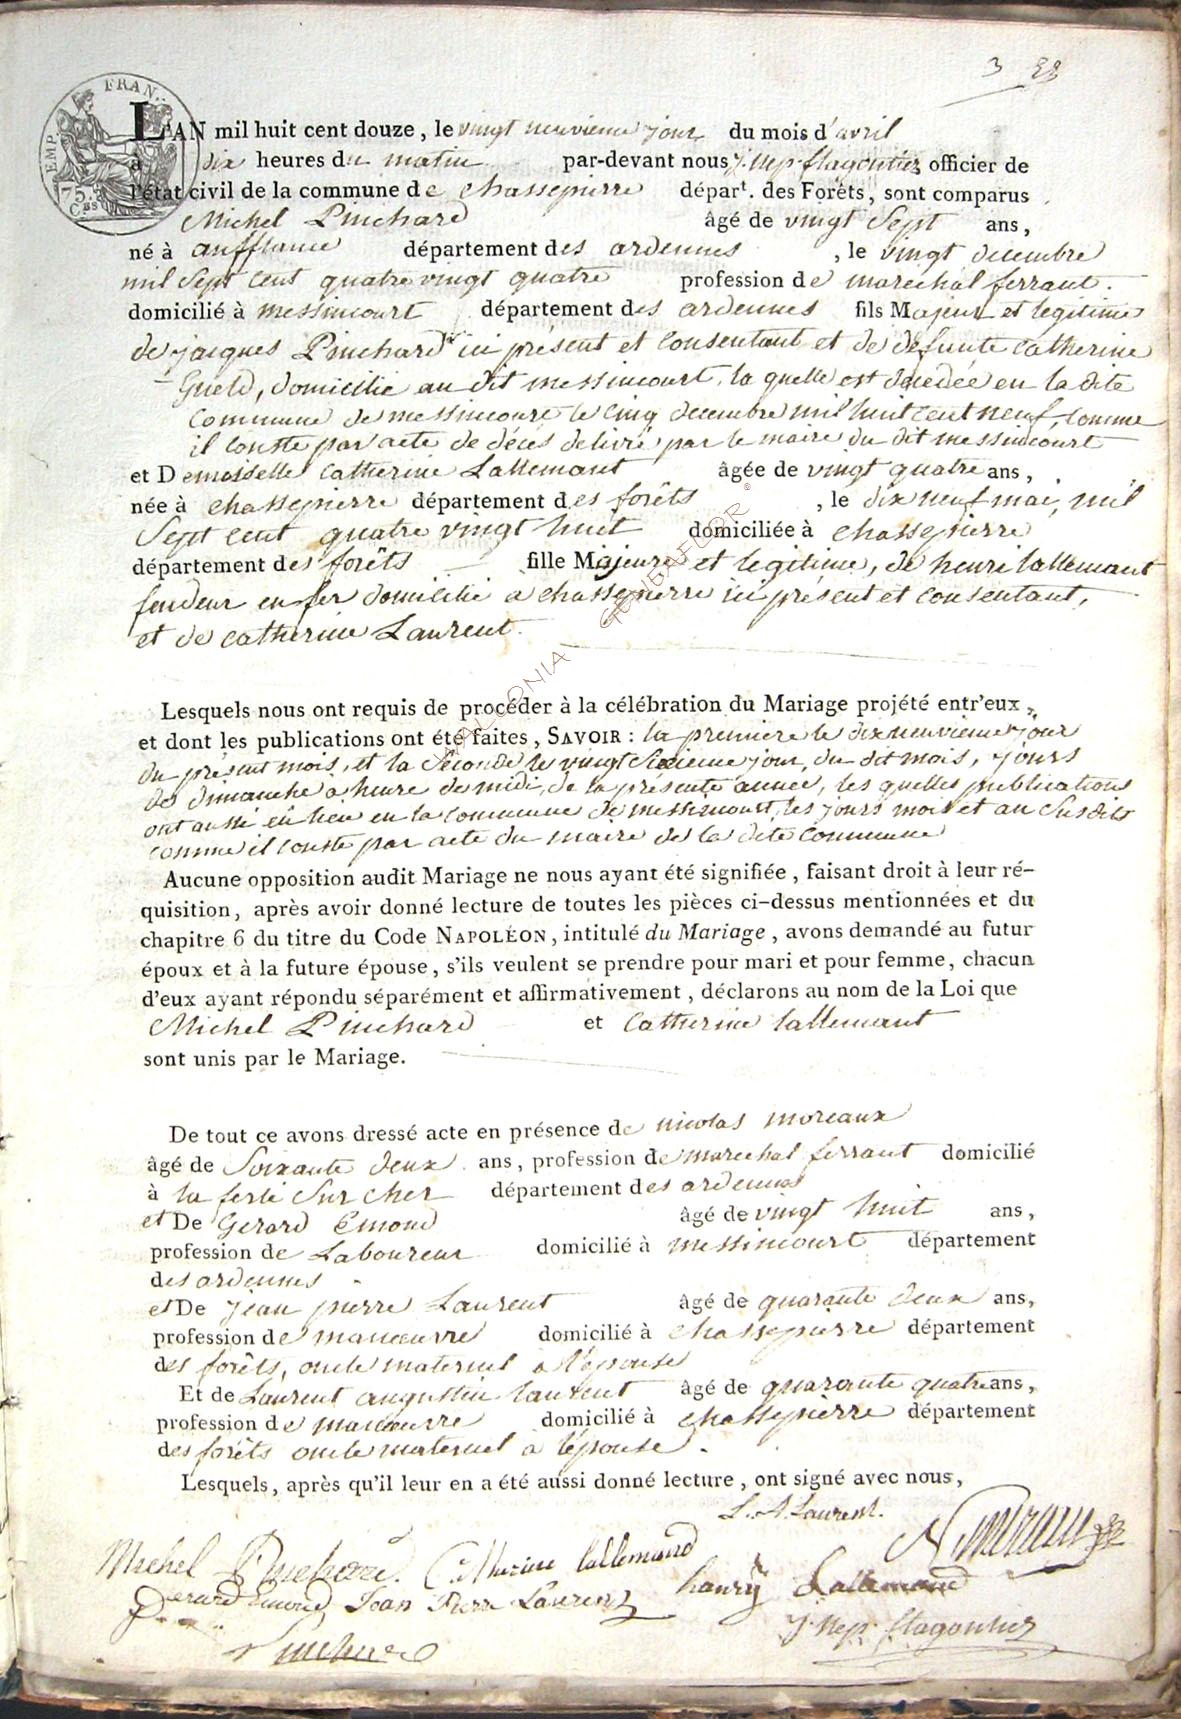 3
EMP. FRAN.
75. Cmes
L'AN mil huit cent douze, le vingt neuvieme jour du mois d'avril
à dix heures du matin par-devant nous J. Nep. flagontier officier de
l'état civil de la commune de chassepierre départ. des Forêts, sont comparus
Michel Pinchard âgé de vingt Sept ans,
né à aufflance département des ardennes, le vingt decembre
mil Sept cent quatre vingt quatre profession de marechal ferrant.
domicilié à messincourt département des ardennes fils Majeur et legitime
de jacques Pinchard ici présent et consentant et de defunte catherine
domicilié au dit messincourt, la quelle est decedée en la dite
commune de messincourt le cinq decembre mil huit cent neuf, comme
il conste par acte de décès delivré par le maire du dit messincourt
et Demoiselle catherine Lallemant âgée de vingt quatre ans,
née à chassepierre département des forêts, le dix neuf mai, mil
Sept cent quatre vingt huit domiciliée à chassepierre
département des forêts fille Majeure et legitime, de henri lallemant
fondeur en fer domicilié à chassepierre ici présent et consentant,
et de catherine Laurent.
WALLONIA GENEAFLOR ©
Lesquels nous ont requis de procéder à la célébration du Mariage projété entr'eux,
et dont les publications ont été faites, SAVOIR : la premiere le dixneuvieme jour
du présent mois, et la Seconde le vingt Sixieme jour, du dit mois, jours
de dimanche à heure de midi, de la présente année, les quelles publications
ont aussi eu lieu en la commune de messincourt, les jours mois et an Susdits
comme il conste par acte du maire de la dite commune
Aucune opposition audit Mariage ne nous ayant été signifiée, faisant droit à leur ré-
quisition, après avoir donné lecture de toutes les pièces ci-dessus mentionnées et du
chapitre 6 du titre du Code NAPOLÉON, intitulé du Mariage, avons demandé au futur
époux et à la future épouse, s'ils veulent se prendre pour mari et pour femme, chacun
d'eux ayant répondu séparément et affirmativement, déclarons au nom de la Loi que
Michel Pinchard et catherine lallemant
sont unis par le Mariage.
De tout ce avons dressé acte en présence de nicolas moreaux
âgé de Soixante deux ans, profession de marechal ferrant domicilié
à la ferté Sur cher département des ardennes
et De Gerard Emond âgé de vingt huit ans,
profession de Laboureur domicilié à messincourt département
des ardennes
et De jean pierre Laurent âgé de quarante deux ans,
profession de manœuvre domicilié à chassepierre département
des forêts, oncle maternel à l'épouse
Et de Laurent augustin laurent âgé de quarante quatre ans,
profession de manœuvre domicilié à chassepierre département
des forêts oncle maternel à l'épouse.
Lesquels, après qu'il leur en a été aussi donné lecture, ont signé avec nous,
L. A. Laurent.
Michel Pinchard. Catherine lallemand
Gerard Emond Jean Pierre Laurent hanry Lallemand
J. Nep. flagontier
Pinchard